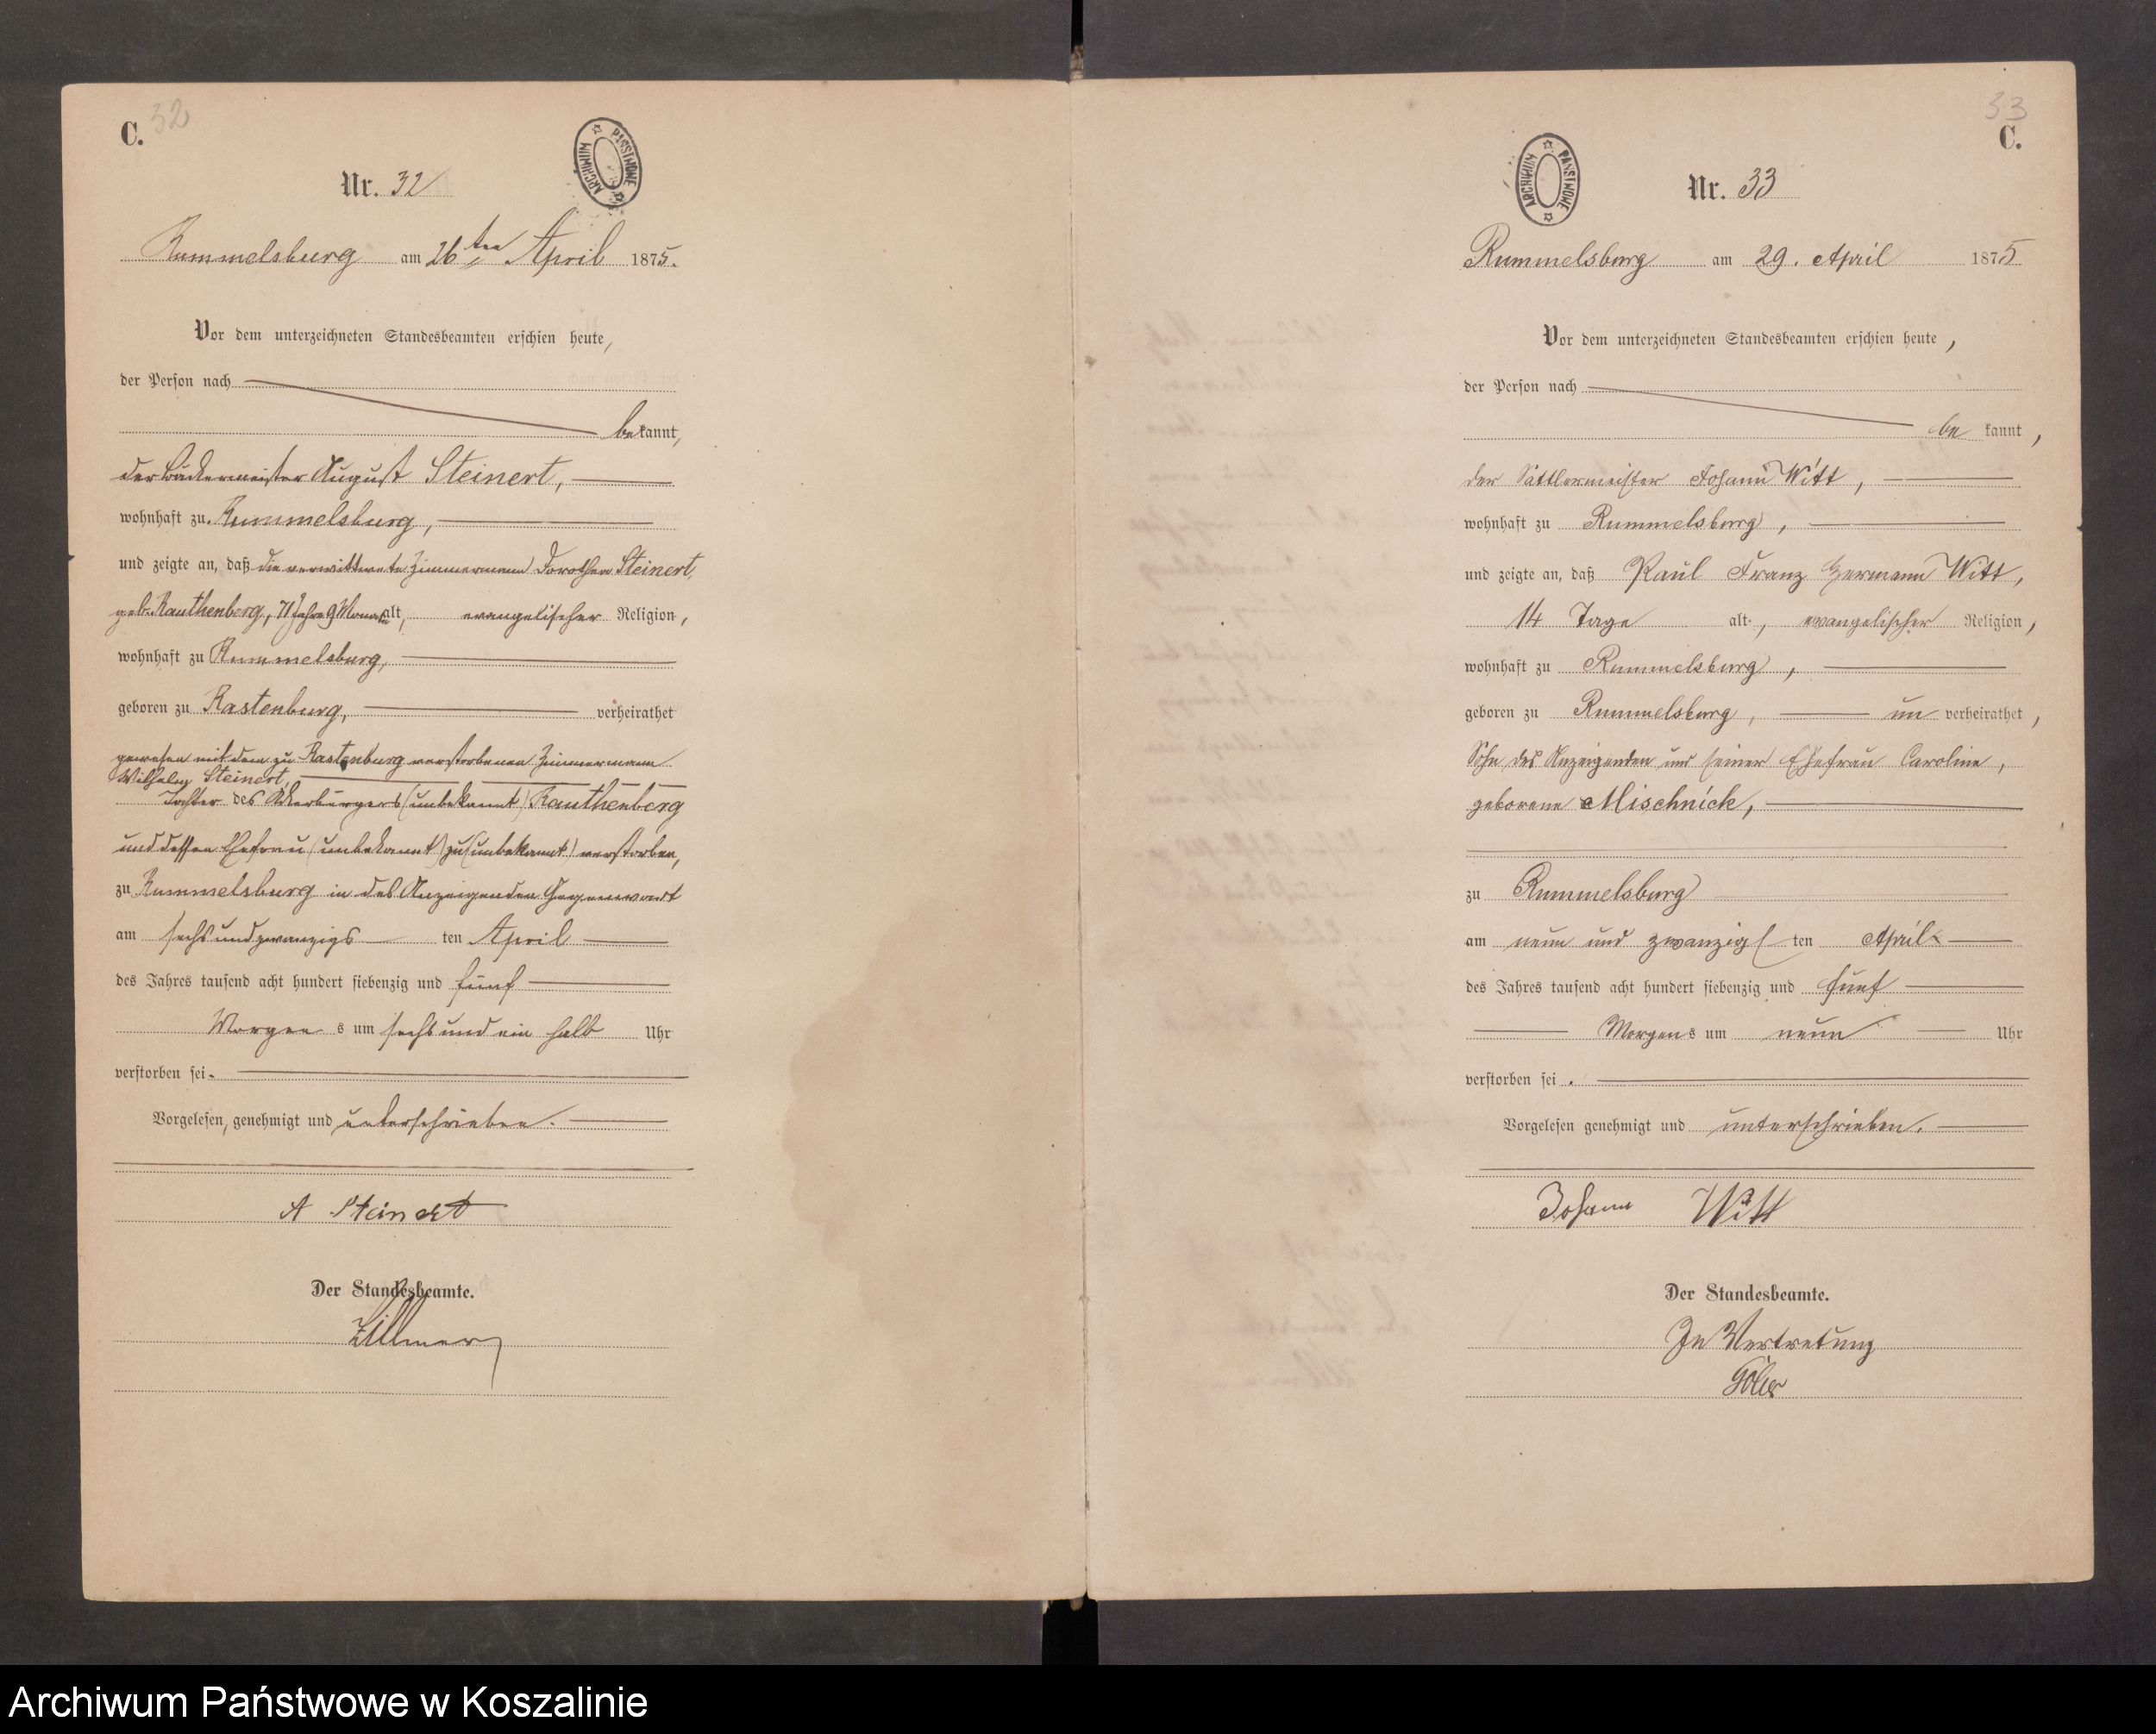 C. 32
ARCHIWUM PAŃSTWOWE
Nr. 32
Rummelsburg am 26ten April 1875.
Vor dem unterzeichneten Standesbeamten erschien heute,
der Person nach
bekannt,
der Bäckermeister August Steinert,
wohnhaft zu Rummelsburg,
und zeigte an, daß die verwittwete Zimmermann Dorothea Steinert,
geb. Rauthenberg, 71 Jahre 9 Monat alt, evangelischer Religion,
wohnhaft zu Rummelsburg,
geboren zu Rastenburg, verheirathet
gewesen mit dem zu Rastenburg verstorbenen Zimmermann
Wilhelm Steinert,
Tochter des Ackerbürgers (unbekannt) Rauthenberg
und dessen Ehefrau (unbekannt) zu (unbekannt) verstorben,
zu Rummelsburg in des Anzeigenden Gegenwart
am sechsundzwanzigsten April
des Jahres tausend acht hundert siebenzig und fünf
Morgens um sechs und ein halb Uhr
verstorben sei.
Vorgelesen, genehmigt und unterschrieben.
A Steinert
Der Standesbeamte.
Zillmer
33
C.
ARCHIWUM PAŃSTWOWE
Nr. 33
Rummelsburg am 29. April 1875
Vor dem unterzeichneten Standesbeamten erschien heute,
der Person nach
bekannt,
der Sattlermeister Johann Witt,
wohnhaft zu Rummelsburg,
und zeigte an, daß Paul Franz Hermann Witt,
14 Tage alt, evangelischer Religion,
wohnhaft zu Rummelsburg,
geboren zu Rummelsburg, unverheirathet,
Sohn des Anzeigenden und seiner Ehefrau Caroline,
geborene Mischnick,
zu Rummelsburg
am neun und zwanzigsten April
des Jahres tausend acht hundert siebenzig und fünf
Morgens um neun Uhr
verstorben sei.
Vorgelesen genehmigt und unterschrieben.
Johann Witt
Der Standesbeamte.
In Vertretung
Archiwum Państwowe w Koszalinie